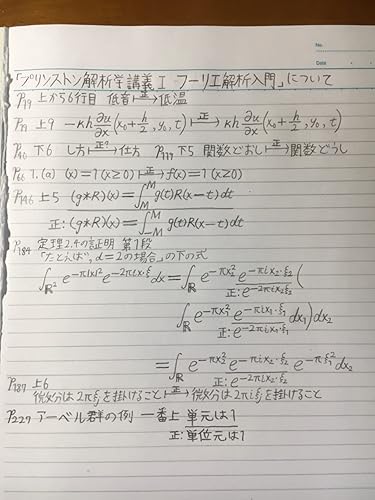 No.
Date
「プリンストン解析学講義Ⅰ フーリエ解析入門」について
P19 上から6行目 低音 ⟼正 低温
P19 上9 -κh ∂u/∂x (x₀+h/2, y₀, t) ⟼正 κh ∂u/∂x (x₀+h/2, y₀, t)
P40 下6 し方 ⟼正? 仕方 P144 下5 関数どおし ⟼正 関数どうし
P66 7.(a) (x)=1(x≥0) ⟼正 f(x)=1(x≥0)
P146 上5 (g*R)(x)=∫_M^M g(t)R(x-t)dt
正: (g*R)(x)=∫_{-M}^M g(t)R(x-t)dt
P184 定理2.4の証明 第1段
「たとえば, d=2の場合」の下の式
∫_{ℝ²} e^{-π|x|²} e^{-2πix·ξ} dx = ∫_ℝ e^{-πx₂²} e^{-πix₂·ξ₂} (
正: e^{-2πix₂ξ₂}
∫_ℝ e^{-πx₁²} e^{-πix₁·ξ₁} dx₁) dx₂
正: e^{-2πix₁ξ₁}
= ∫_ℝ e^{-πx₂²} e^{-πix₂·ξ₂} e^{-πξ₁²} dx₂
正: e^{-2πix₂ξ₂}
P187 上6
微分は2πξⱼを掛けること ⟼正 微分は2πiξⱼを掛けること
P227 アーベル群の例 一番上 単元は1
正: 単位元は1